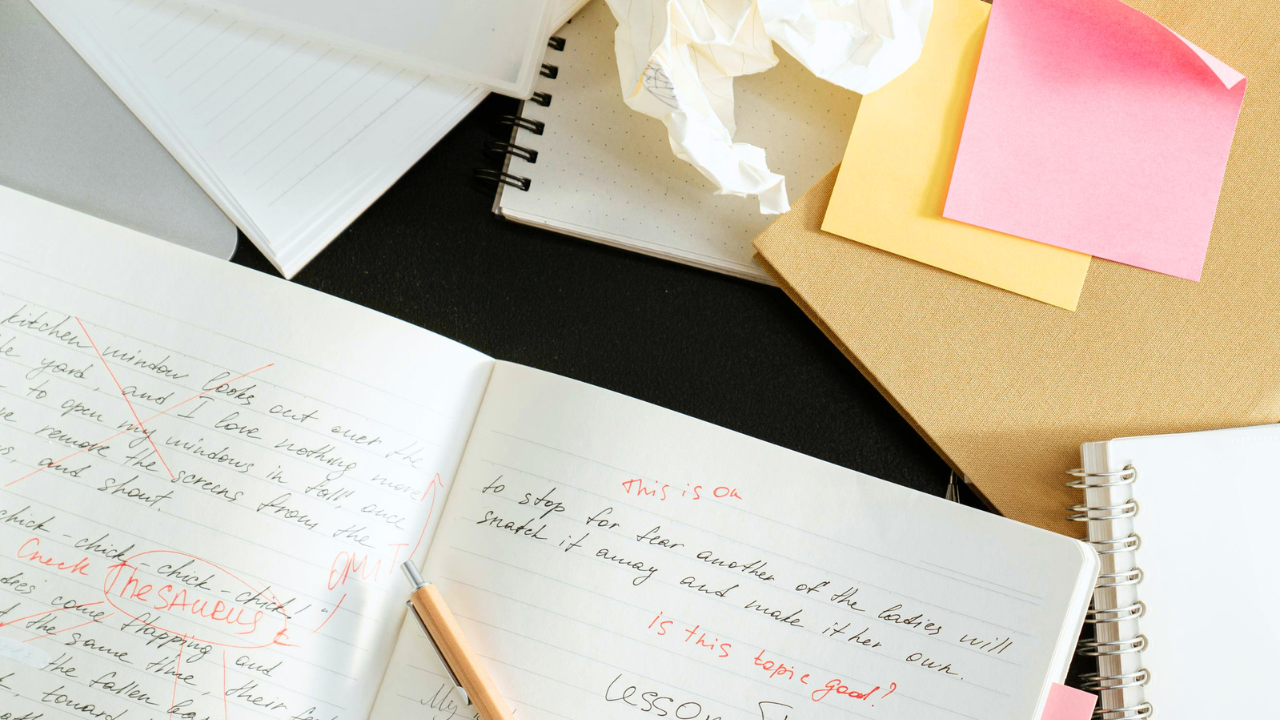 kitchen window looks out over the
yard, and I love nothing more
to open my windows in fall, once
remove the screens from the
and shout.
chick - chick - chick - chick!"
OMIT
Check Thesaurus
come flapping and
the same time, their
the fallen
toward
This is OK
to stop for fear another of the ladies will
snatch it away and make it her own.
is this topic good?
Lesson
My